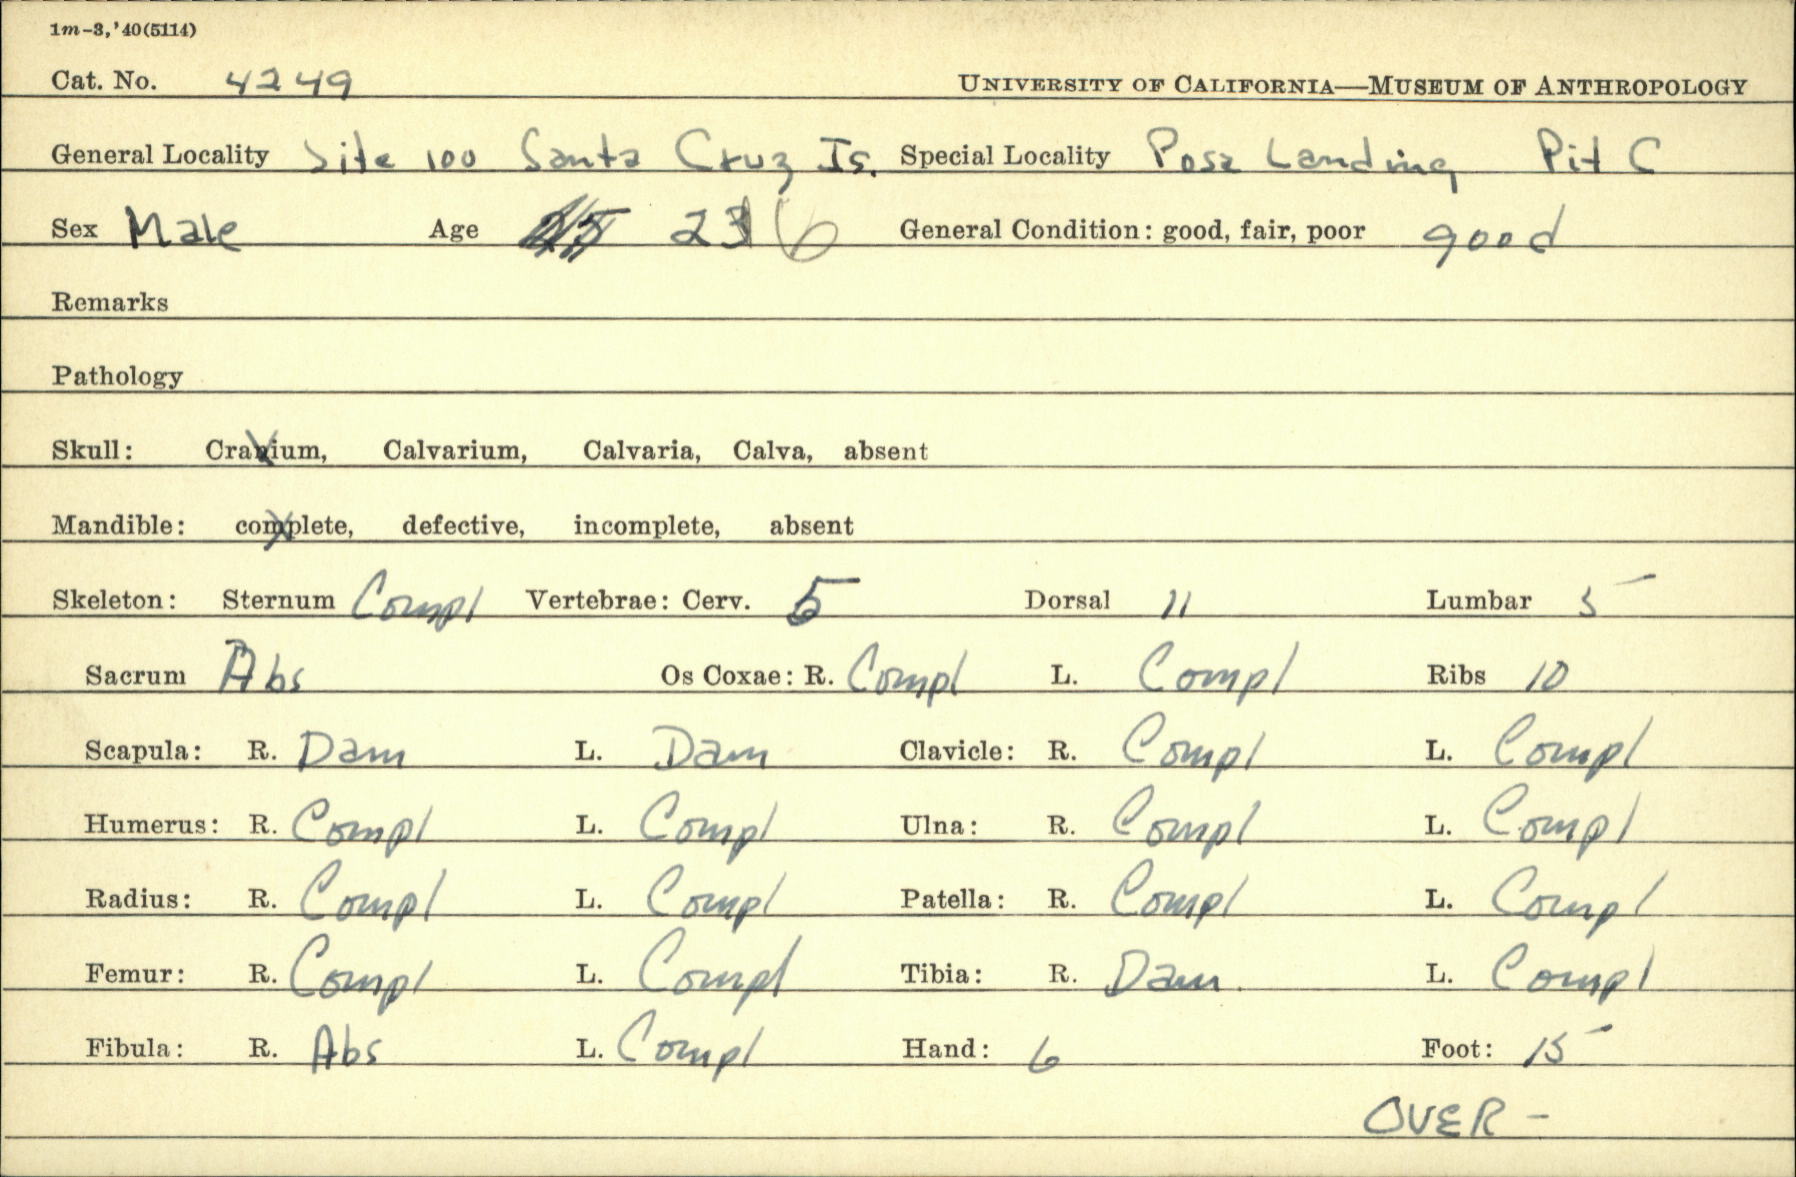 1m-3,'40(5114)
Cat. No. 4249 UNIVERSITY OF CALIFORNIA—MUSEUM OF ANTHROPOLOGY
General Locality Site 100 Santa Cruz Is. Special Locality Posa Landing Pit C
Sex Male Age 23 6 General Condition: good, fair, poor good
Remarks
Pathology
Skull: Cranium, Calvarium, Calvaria, Calva, absent
Mandible: complete, defective, incomplete, absent
Skeleton: Sternum Compl Vertebrae: Cerv. 5 Dorsal 11 Lumbar 5
Sacrum Abs Os Coxae: R. Compl L. Compl Ribs 10
Scapula: R. Dam L. Dam Clavicle: R. Compl L. Compl
Humerus: R. Compl L. Compl Ulna: R. Compl L. Compl
Radius: R. Compl L. Compl Patella: R. Compl L. Compl
Femur: R. Compl L. Compl Tibia: R. Dam. L. Compl
Fibula: R. Abs L. Compl Hand: 6 Foot: 15
OVER -